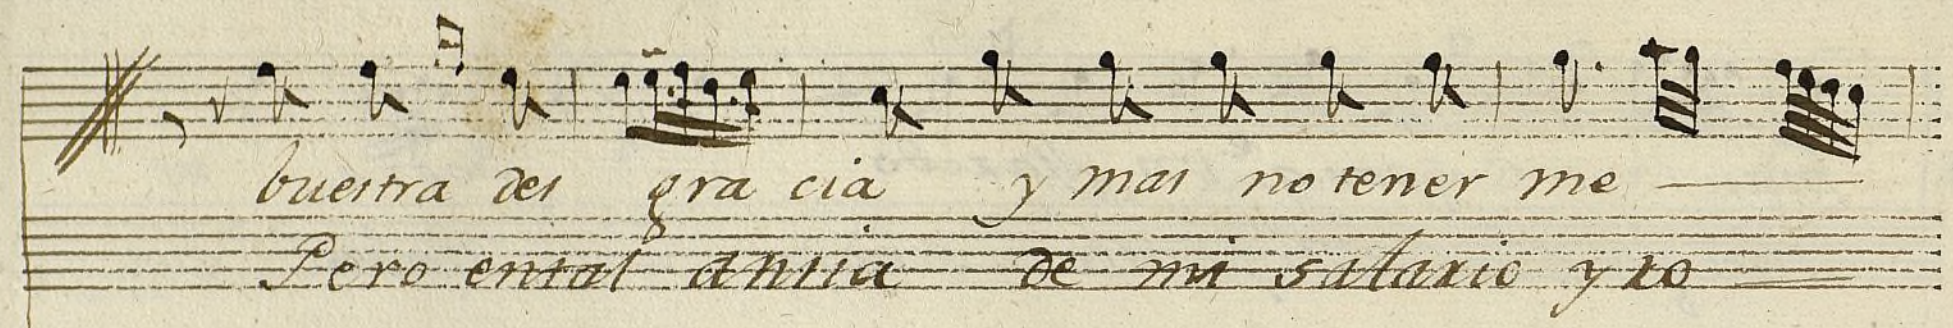 buestra des gra cia y mas no tener me
Pero ental ansia de mi salario y ro